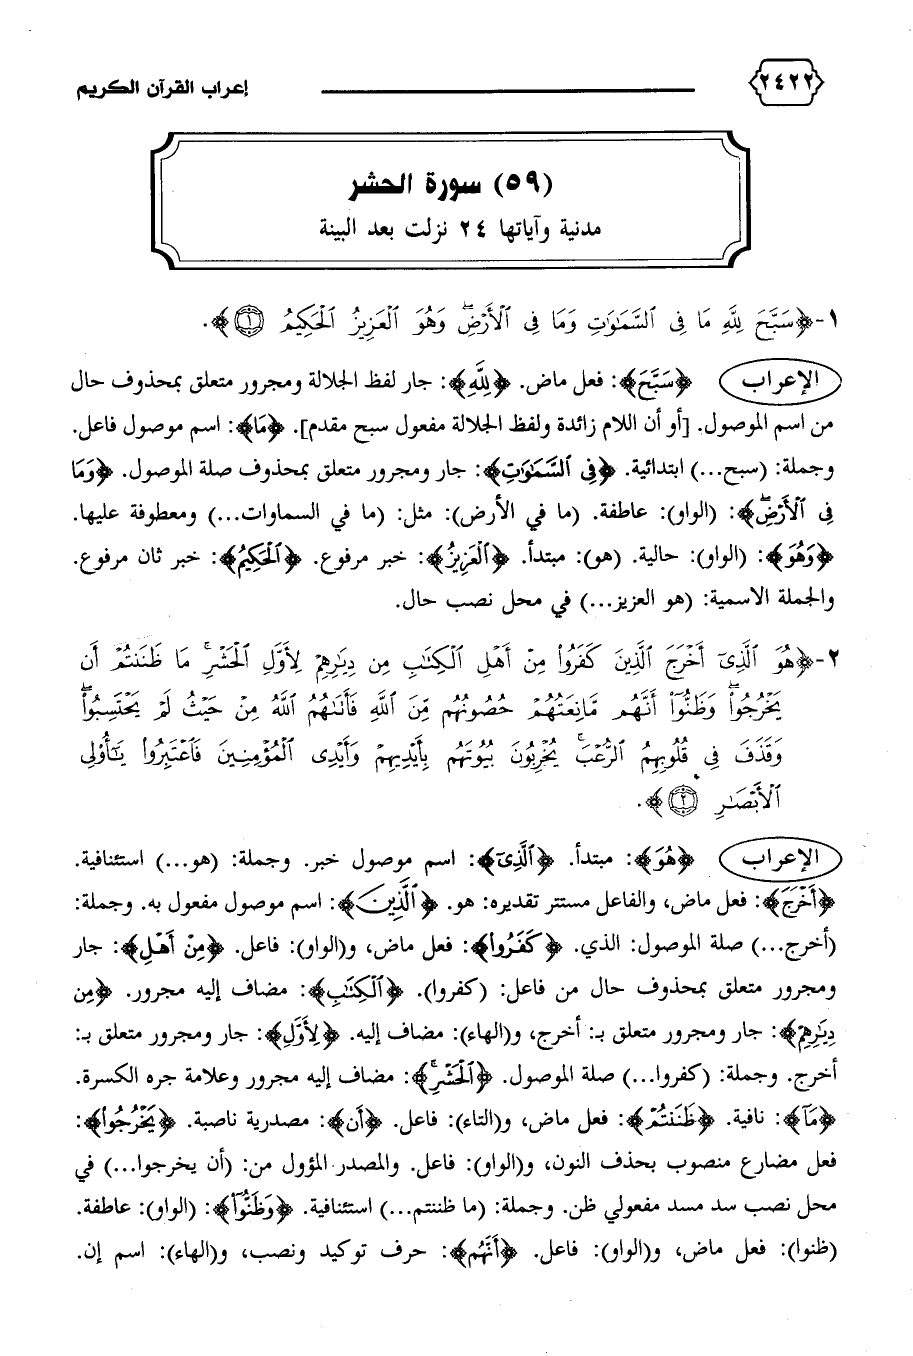 ٢٤٢٢
إعراب القرآن الكريم
(٥٩) سورة الحشر
مدنية وآياتها ٢٤ نزلت بعد البينة
١-﴿سَبَّحَ لِلَّهِ مَا فِي ٱلسَّمَٰوَٰتِ وَمَا فِي ٱلْأَرْضِۖ وَهُوَ ٱلْعَزِيزُ ٱلْحَكِيمُ ۝١﴾.
الإعراب ﴿سَبَّحَ﴾: فعل ماض. ﴿لِلَّهِ﴾: جار لفظ الجلالة ومجرور متعلق بمحذوف حال
من اسم الموصول. [أو أن اللام زائدة ولفظ الجلالة مفعول سبح مقدم]. ﴿مَا﴾: اسم موصول فاعل.
وجملة: (سبح...) ابتدائية. ﴿فِي ٱلسَّمَٰوَٰتِ﴾: جار ومجرور متعلق بمحذوف صلة الموصول. ﴿وَمَا
فِي ٱلْأَرْضِۖ﴾: (الواو): عاطفة. (ما في الأرض): مثل: (ما في السماوات...) ومعطوفة عليها.
﴿وَهُوَ﴾: (الواو): حالية. (هو): مبتدأ. ﴿ٱلْعَزِيزُ﴾: خبر مرفوع. ﴿ٱلْحَكِيمُ﴾: خبر ثان مرفوع.
والجملة الاسمية: (هو العزيز...) في محل نصب حال.
٢-﴿هُوَ ٱلَّذِيٓ أَخْرَجَ ٱلَّذِينَ كَفَرُوا۟ مِنْ أَهْلِ ٱلْكِتَٰبِ مِن دِيَٰرِهِمْ لِأَوَّلِ ٱلْحَشْرِۚ مَا ظَنَنتُمْ أَن
يَخْرُجُوا۟ۖ وَظَنُّوٓا۟ أَنَّهُم مَّانِعَتُهُمْ حُصُونُهُم مِّنَ ٱللَّهِ فَأَتَىٰهُمُ ٱللَّهُ مِنْ حَيْثُ لَمْ يَحْتَسِبُوا۟ۖ
وَقَذَفَ فِي قُلُوبِهِمُ ٱلرُّعْبَۚ يُخْرِبُونَ بُيُوتَهُم بِأَيْدِيهِمْ وَأَيْدِي ٱلْمُؤْمِنِينَ فَٱعْتَبِرُوا۟ يَٰٓأُو۟لِي
ٱلْأَبْصَٰرِ ۝٢﴾.
الإعراب ﴿هُوَ﴾: مبتدأ. ﴿ٱلَّذِيٓ﴾: اسم موصول خبر. وجملة: (هو...) استئنافية.
﴿أَخْرَجَ﴾: فعل ماض، والفاعل مستتر تقديره: هو. ﴿ٱلَّذِينَ﴾: اسم موصول مفعول به. وجملة:
(أخرج...) صلة الموصول: الذي. ﴿كَفَرُوا۟﴾: فعل ماض، و(الواو): فاعل. ﴿مِنْ أَهْلِ﴾: جار
ومجرور متعلق بمحذوف حال من فاعل: (كفروا). ﴿ٱلْكِتَٰبِ﴾: مضاف إليه مجرور. ﴿مِن
دِيَٰرِهِمْ﴾: جار ومجرور متعلق بـ: أخرج، و(الهاء): مضاف إليه. ﴿لِأَوَّلِ﴾: جار ومجرور متعلق بـ:
أخرج. وجملة: (كفروا...) صلة الموصول. ﴿ٱلْحَشْرِۚ﴾: مضاف إليه مجرور وعلامة جره الكسرة.
﴿مَآ﴾: نافية. ﴿ظَنَنتُمْ﴾: فعل ماض، و(التاء): فاعل. ﴿أَن﴾: مصدرية ناصبة. ﴿يَخْرُجُوا۟﴾:
فعل مضارع منصوب بحذف النون، و(الواو): فاعل. والمصدر المؤول من: (أن يخرجوا...) في
محل نصب سد مسد مفعولي ظن. وجملة: (ما ظننتم...) استئنافية. ﴿وَظَنُّوٓا۟﴾: (الواو): عاطفة.
(ظنوا): فعل ماض، و(الواو): فاعل. ﴿أَنَّهُم﴾: حرف توكيد ونصب، و(الهاء): اسم إن.